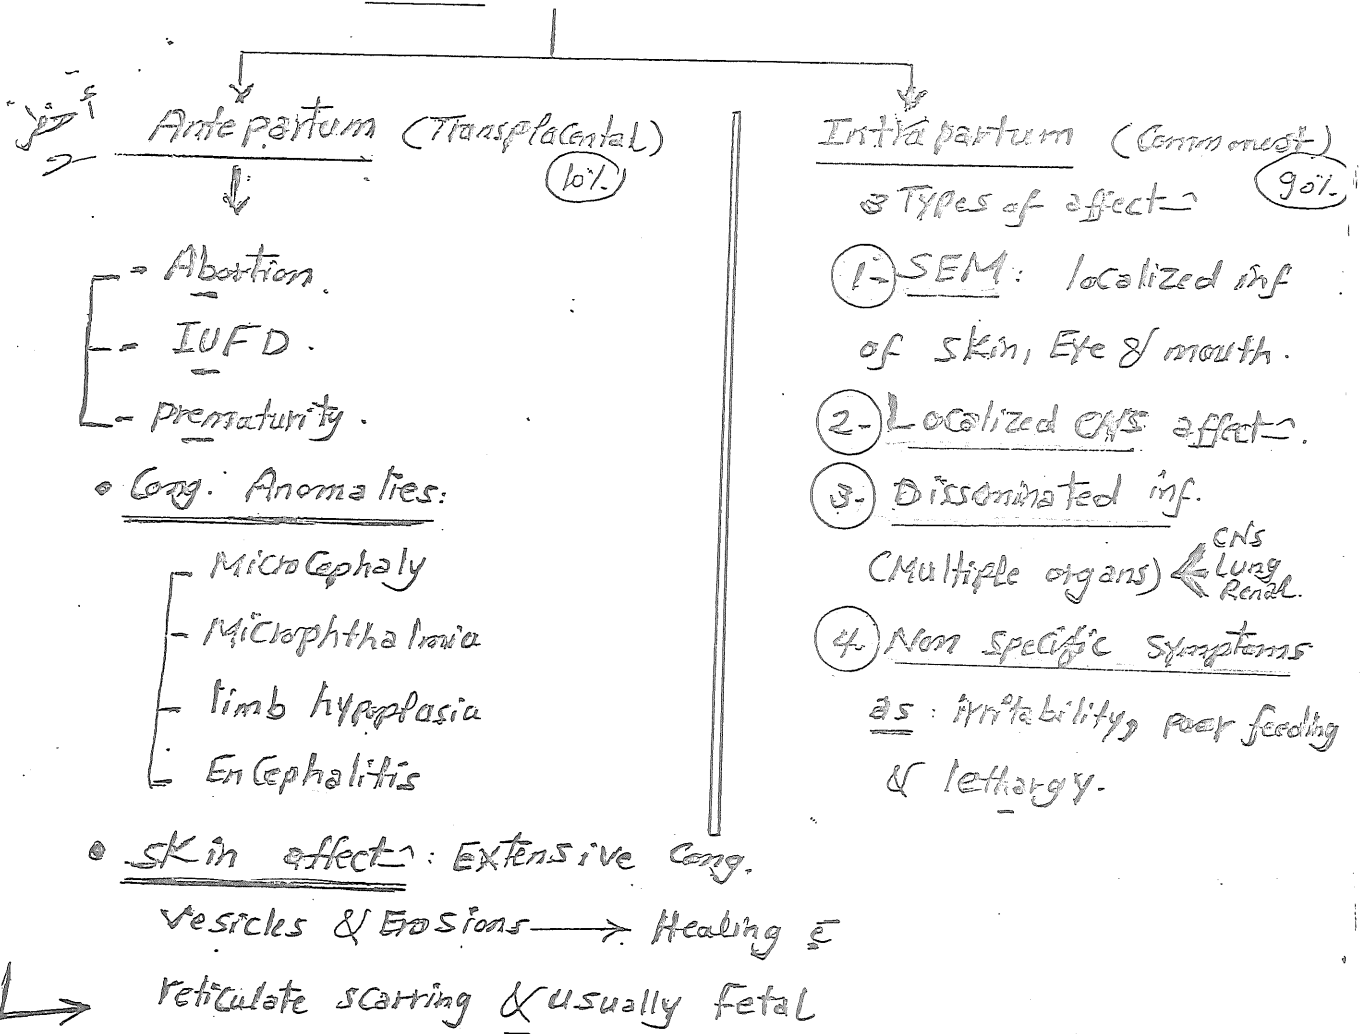 Antepartum (Transplacental)
10%
Abortion.
- IUFD.
- Prematurity.
• Cong. Anomalies:
- Microcephaly
- Microphthalmia
- limb hypoplasia
- Encephalitis
• skin affect⌒: Extensive Cong.
vesicles & Erosions → Healing c̄
reticulate scarring & usually fetal
Intrapartum (Commonest)
90%
3 Types of affect⌒
1- SEM: localized inf
of skin, Eye & mouth.
2- Localized CNS affect⌒.
3- Dissominated inf.
(Multiple organs) CNS
Lung
Renal.
4- Non specific symptoms
as: irritability, poor feeding
& lethargy.